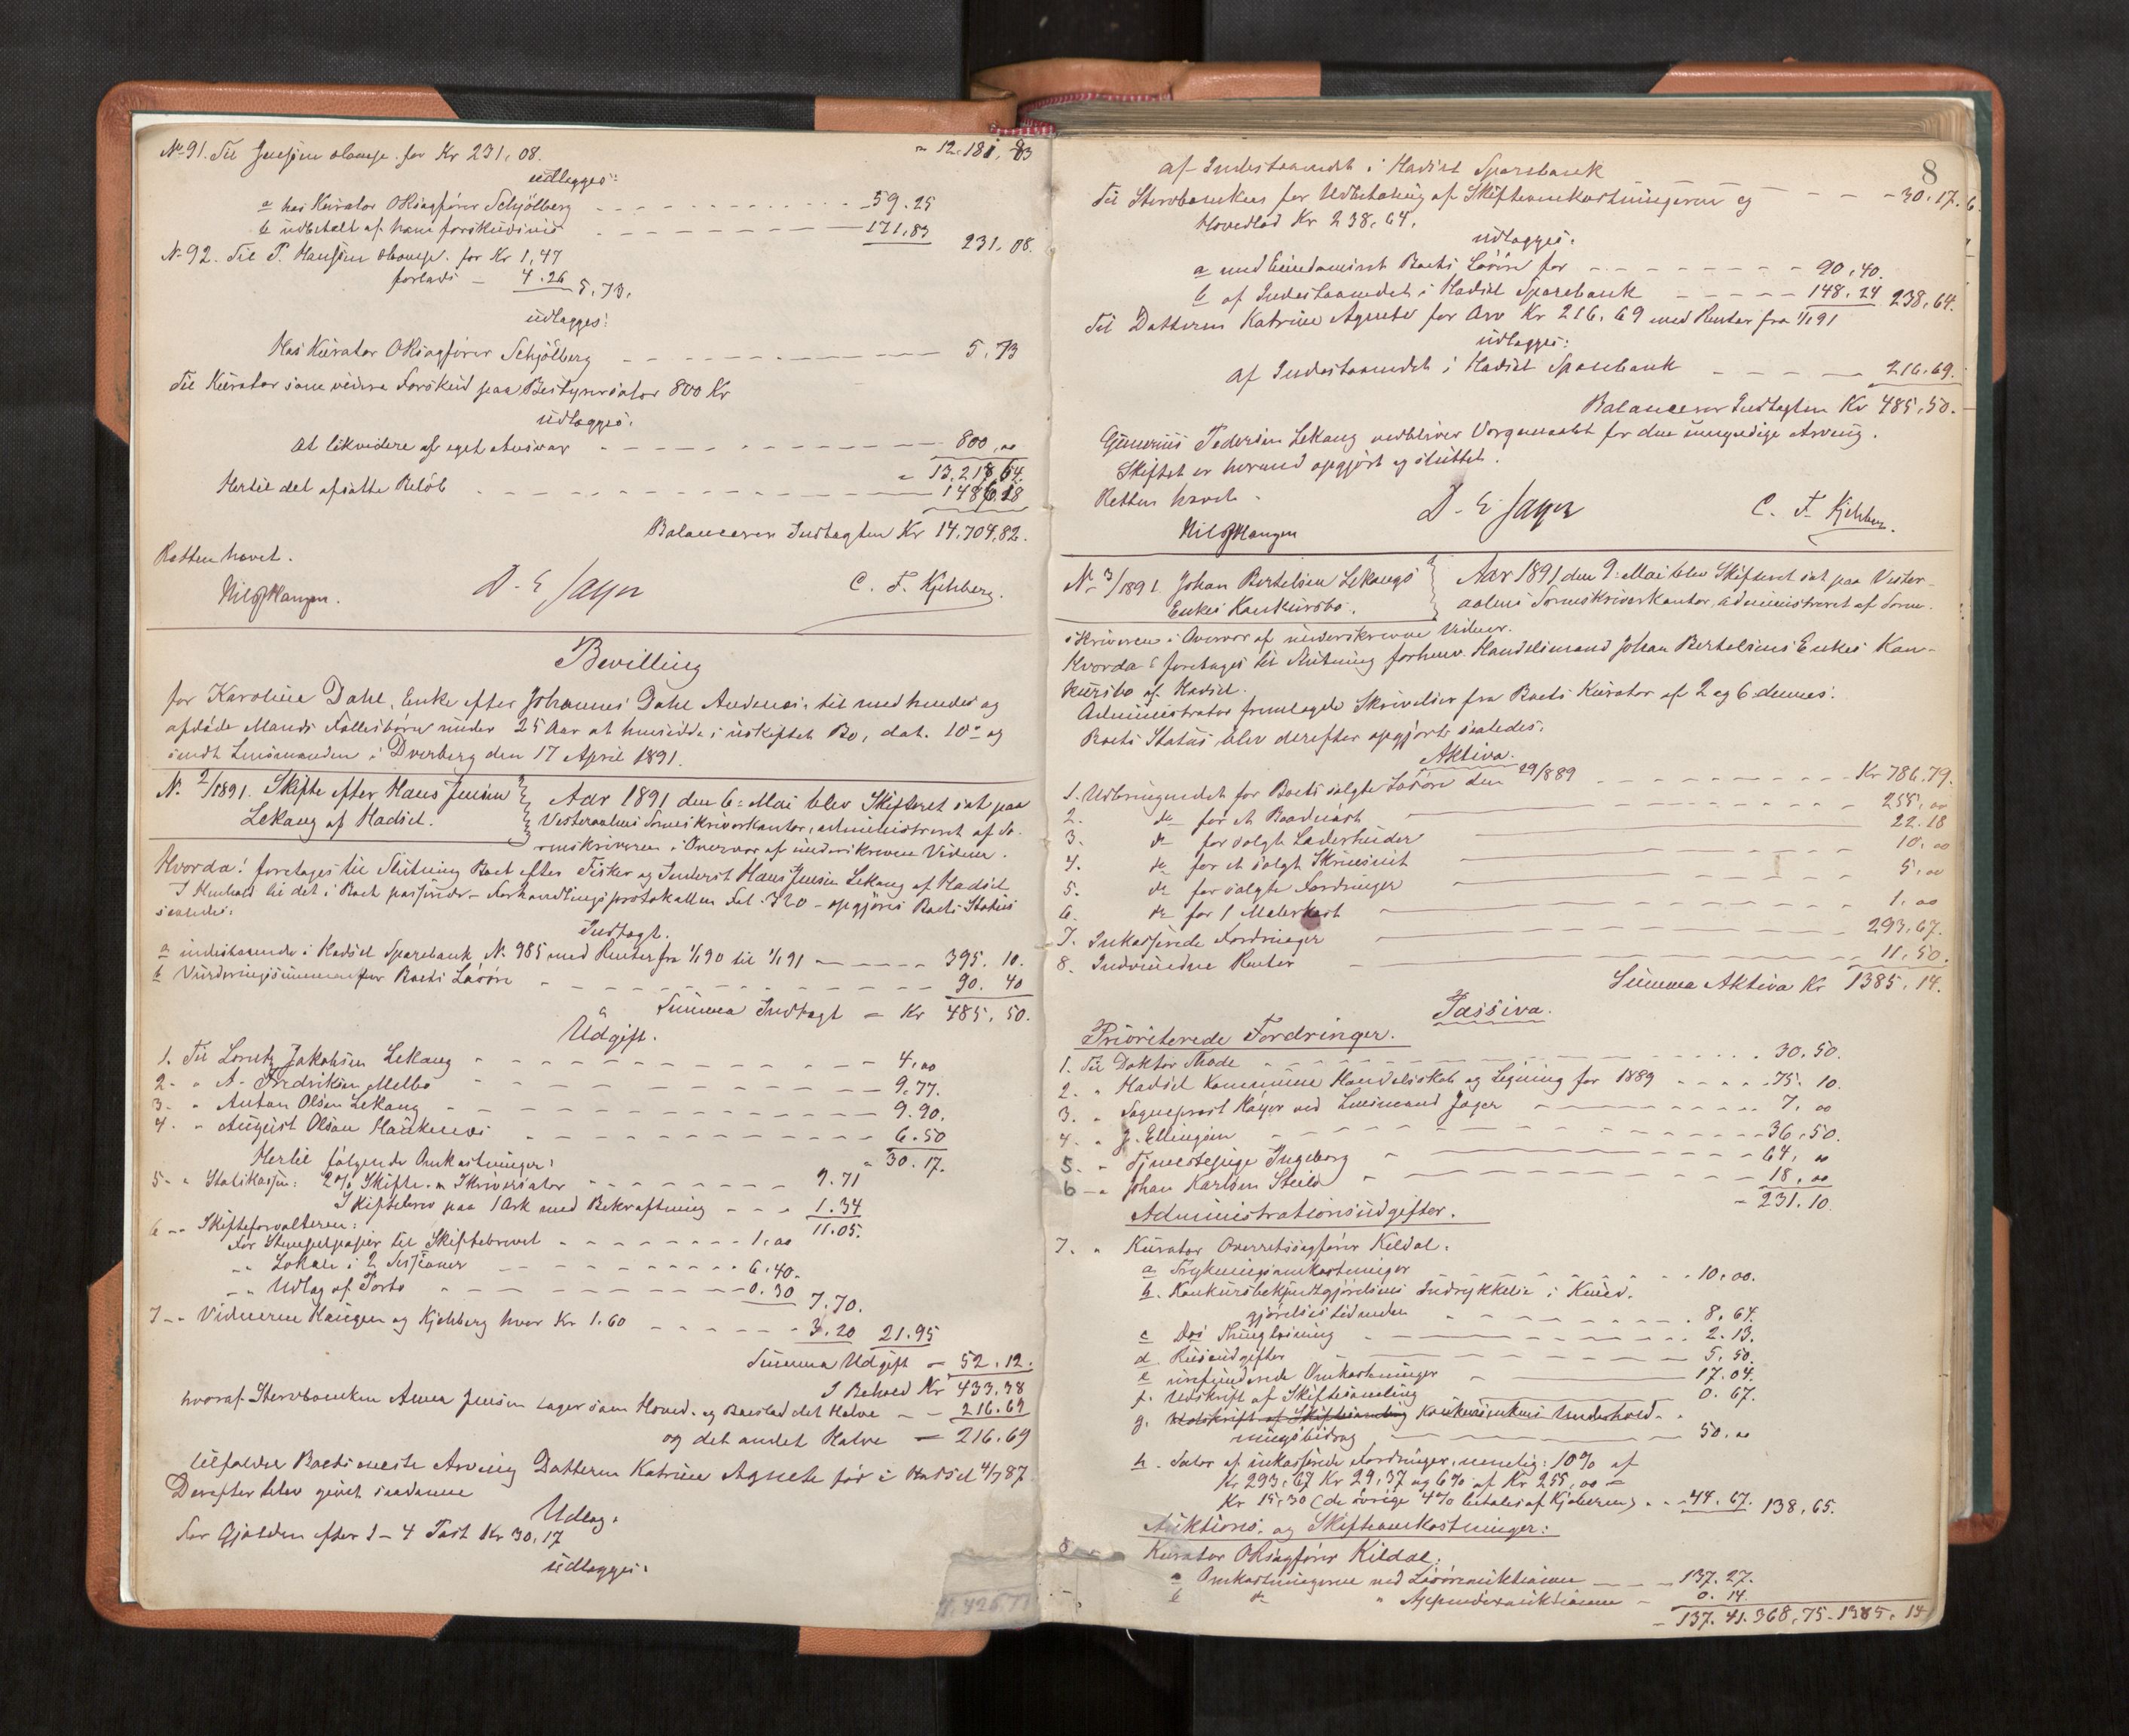 No 91. Til Jensen & Comp. for Kr 231,08. " 12.181,83
udlægges:
a hos Kurator ORsagfører Schjølberg 59.25
b udbetalt af ham forskudsvis 171,83 231,08.
No 92. Til P. Hansen & Comp. for Kr 1,47
forlods 4.26 5,73.
udlægges:
Hos Kurator ORsagfører Schjølberg 5,73
Til Kurator som videre Forskud paa Bestyrersalær 800 Kr
udlægges:
at likvidere af eget Ansvar 800,00
" 13.218,64.
Hertil det afsatte Beløb 1486.18
Balancerer Indtægten Kr 14,704,82.
Retten hævet.
Nils Haugen. D. E. Jager C. F. Kjelsberg.
Bevilling
for Karoline Dahl, Enke efter Johannes Dahl Andenes, til med hendes og
afdøde Mands Fællesbørn under 25 Aar at hensidde i uskiftet Bo, dat. 10de og
sendt Lensmanden i Dverberg den 17 April 1891.
No. 2/1891. Skifte efter Hans Jensen
Lekang af Hadsel.
Aar 1891 den 6: Mai blev Skifteret sat paa
Vesteraalens Sorenskriverkontor, administreret af So-
renskriveren i Overvær af underskrevne Vidner.
Hvorda: foretoges til Slutning Boet efter Fisker og Inderst Hans Jensen Lekang af Hadsel
I Henhold til det i Boet passerede - Forhandlingsprotokollen Fol. 320 - opgjøres Boets Status
saaledes:
Indtægt.
a indestaaende i Hadsel Sparebank No. 985 med Renter fra 1/1 90 til 1/1 91 395. 10.
b Vurderingssummen for Boets Løsøre 90. 40
Summa Indtægt = Kr 485, 50.
Udgift.
1. Til Lorentz Jakobsen Lekang 4,00
2. " A. Fredriksen Melbo 9.77.
3. " Anton Olsen Lekang 9.90.
4. " August Olsen Haukenes 6.50
" 30.17.
Hertil følgende Omkostninger:
5. " Statskassen: 2% Skifte- & Skriversalær 9.71
Skiftebrev paa 1 Ark med Bekræftning 1.34
11.05.
6. " Skifteforvalteren:
For Stempelpapir til Skiftebrevet 1,00
" " Lokale i 2 Sessioner 6.40.
" " Udlæg af Porto 0.30 7.70.
7. " Vidnerne Haugen og Kjelsberg hver Kr 1.60 3.20 21.95
Summa Udgift = 52.12.
I Behold Kr 433,38
hvoraf Stervboenken Anna Jensen tager som Hoved- og Boeslod det Halve 216.69
og det andet Halve = 216.69
tilfalder Boets eneste Arving Datteren Katrine Agnete født i Hadsel 4/7 87.
Derefter blev gjort saadanne
Udlæg.
For Gjælden efter 1-4 Post Kr 30,17
udlægges:
4,426,71
8
af Indestaaendet i Hadsel Sparebank 30.17.
Til Stervboenken for Udbetaling af Skifteomkostningerne og
Hovedlod Kr 238,64.
udlægges:
a med Eiendommeret Boets Løsøre for 90,40.
b af Indestaaendet i Hadsel Sparebank 148.24 238,64.
Til Datteren Katrine Agnete for Arv Kr 216,69 med Renter fra 1/1 91
udlægges:
af Indestaaendet i Hadsel Sparebank 216.69.
Balancerer Indtægten Kr 485,50.
Gunerius Pedersen Lekang vedbliver Værgemaalet for den umyndige Arving.
Skiftet er hermed opgjørt og sluttet.
Retten hævet.
Nils Haugen D. E. Jager C. F. Kjelsberg.
No. 3/1891 Johan Bertelsen Lekangs
Enkes Konkursbo.
Aar 1891 den 9: Mai blev Skifteret sat paa Vester-
aalens Sorenskriverkontor, administreret af Soren-
skriveren i Overvær af underskrevne Vidner.
Hvorda: foretoges til Slutning forhenv. Handelsmand Johan Bertelsens Enkes Kon-
kursbo af Hadsel.
Administrator fremlagde Skrivelser fra Boets Kurator af 2 og 6 dennes:
Boets Status blev derefter opgjørt saaledes:
Aktiva.
1. Udbringendet for Boets solgte Løsøre den 29/8 89 Kr 786,79.
2. do for et Baadnøst 255,00
3. do for solgte Læderhuder 22.18
4. do for et solgt Skrinsnit 10,00
5. do for solgte Fordringer 5,00
6. do for 1 Malerkost 1,00
7. Inkasserede Fordringer 293,67.
8. Indvundne Renter 11,50.
Summa Aktiva Kr 1385,14.
Passiva.
Prioriterede Fordringer.
1. Til Doktor Thode 30.50.
2. " Hadsel Kommune Handelsskat og Ligning for 1889 75. 10.
3. " Sogneprest Kayer ved Lensmand Jager 7,00
4. " J. Ellingsen 36,50.
5. " Tjenestepige Ingeborg 64,00
6. " Johan Karlsen Steild 18,00
" 231.10.
Administrationsudgifter.
7. " Kurator Overretssagfører Kildal.
a Trykningsomkostninger 10,00.
b. Konkursbekjendtgjørelsens Indrykkelse i Kund-
gjørelsestidenden 8,64.
c Dos Thinglæsning 2.13.
d. Reiseudgifter 5,50.
e. unefunderede Omkostninger 17.04.
f. Udskrift af Skiftesamling 0.67.
g. Udskrift af Skiftesamling Konkursenkens Underhold-
ningsbidrag 50,00
h. Salær af inkasserede Fordringer, nemlig: 10% af
Kr 293,67 Kr 29,37 og 6% af Kr 255,00 =
Kr 15,30 (de øvrige 4% betales af Kjøberen) 44.67. 138,65.
Auktions- og Skifteomkostninger:
8 " Kurator ORsagfører Kildal:
a Omkostningerne ved Løsøreauktionen 137.27.
b do " Appendixauktionen 0.14
= 137.41. 368,75. 1385,14